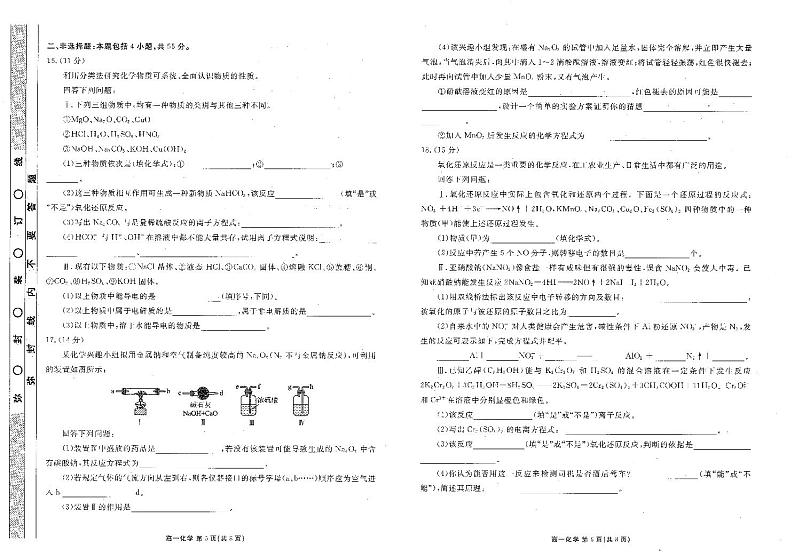 二、非选择题:本题包括4小题,共55分。
16.(11分)
利用分类法研究化学物质可系统、全面认识物质的性质。
回答下列问题:
Ⅰ.下列三组物质中,均有一种物质的类别与其他三种不同。
①MgO、Na₂O、CO₂、CuO
②HCl、H₂O、H₂SO₄、HNO₃
③NaOH、Na₂CO₃、KOH、Cu(OH)₂
(1)三种物质依次是(填化学式):① ;② ;③ 。
(2)这三种物质相互作用可生成一种新物质NaHCO₃,该反应 (填“是”或
“不是”)氧化还原反应。
(3)写出Na₂CO₃与足量稀硫酸反应的离子方程式: 。
(4)HCO₃⁻与H⁺、OH⁻在溶液中都不能大量共存,试用离子方程式说明:
Ⅱ.现有以下物质:①NaCl晶体、②液态HCl、③CaCO₃固体、④熔融KCl、⑤蔗糖、⑥铜、
⑦CO₂、⑧H₂SO₄、⑨KOH固体。
(1)以上物质中能导电的是 (填序号,下同)。
(2)以上物质中属于电解质的是 ,属于非电解质的是 。
(3)以上物质中,溶于水能导电的物质是 。
17.(14分)
某化学兴趣小组拟用金属钠和空气制备纯度较高的Na₂O₂(N₂不与金属钠反应),可利用
的装置如图所示:
a b c d e f g h
碱石灰
NaOH+CaO
浓硫酸
Ⅰ Ⅱ Ⅲ Ⅳ
回答下列问题:
(1)装置Ⅳ中盛放的药品是 ,若没有该装置可能导致生成的Na₂O₂中含
有碳酸钠,其反应方程式为 。
(2)若规定气体的气流方向从左到右,则各仪器接口的标号字母(a、b……)顺序应为空气进
入h d。
(3)装置Ⅱ的作用是 。
高一化学 第5页(共8页)
(4)该兴趣小组发现,在盛有Na₂O₂的试管中加入足量水,固体完全溶解,并立即产生大量
气泡,当气泡消失后,向其中滴入1~2滴酚酞溶液,溶液变红;将试管轻轻振荡,红色很快褪去;
此时再向试管中加入少量MnO₂粉末,又有气泡产生。
①酚酞溶液变红的原因是 ,红色褪去的原因可能是
,设计一个简单的实验方案证明你的猜想
②加入MnO₂后发生反应的化学方程式为
18.(15分)
氧化还原反应是一类重要的化学反应,在工农业生产、日常生活中都有广泛的用途。
回答下列问题:
Ⅰ.氧化还原反应中实际上包含氧化和还原两个过程。下面是一个还原过程的反应式:
NO₃⁻+4H⁺+3e⁻══NO↑+2H₂O,KMnO₄、Na₂CO₃、Cu₂O、Fe₂(SO₄)₃四种物质中的一种
物质(甲)能使上述还原过程发生。
(1)物质(甲)为 (填化学式)。
(2)反应中若产生5个NO分子,则转移电子的数目是 个。
Ⅱ.亚硝酸钠(NaNO₂)像食盐一样有咸味但有很强的毒性,误食NaNO₂会使人中毒。已
知亚硝酸钠能发生反应2NaNO₂+4HI══2NO↑+2NaI+I₂+2H₂O。
(1)用双线桥法标出该反应中电子转移的方向及数目: ,
该氧化的原子与被还原的原子数目之比为 。
(2)自来水中的NO₃⁻对人类健康会产生危害,碱性条件下Al粉还原NO₃⁻,产物是N₂,发
生的反应可表示如下,完成方程式并配平。
Al+ NO₃⁻+ ── AlO₂⁻+ N₂↑+ 。
Ⅲ.已知乙醇(C₂H₅OH)能与K₂Cr₂O₇和H₂SO₄的混合溶液在一定条件下发生反应
2K₂Cr₂O₇+3C₂H₅OH+8H₂SO₄══2K₂SO₄+2Cr₂(SO₄)₃+3CH₃COOH+11H₂O。Cr₂O₇²⁻
和Cr³⁺在溶液中分别显橙色和绿色。
(1)该反应 (填“是”或“不是”)离子反应。
(2)写出Cr₂(SO₄)₃的电离方程式: 。
(3)该反应 (填“是”或“不是”)氧化还原反应,判断的依据是
。
(4)你认为能否用这一反应来检测司机是否酒后驾车? (填“能”或“不
能”),简述其原理:
高一化学 第6页(共8页)
装 订 线
密 封 线 内 不 要 答 题